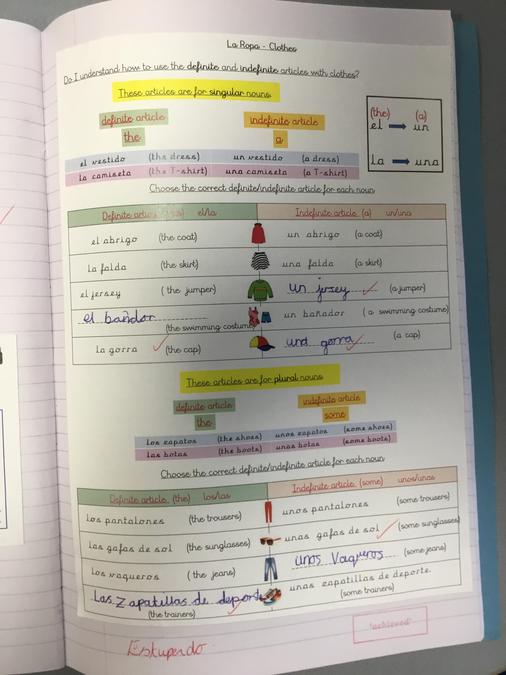 La Ropa - Clothes
Do I understand how to use the definite and indefinite articles with clothes?
These articles are for singular nouns.
definite article indefinite article
the a
(the) (a)
el un
la una
el vestido (the dress) un vestido (a dress)
la camiseta (the T-shirt) una camiseta (a T-shirt)
Choose the correct definite/indefinite article for each noun
Definite article (the) el/la Indefinite article (a) un/una
el abrigo (the coat) un abrigo (a coat)
la falda (the skirt) una falda (a skirt)
el jersey (the jumper) un jrsey (a jumper)
el bañdor (the swimming costume) un bañador (a swimming costume)
la gorra (the cap) una gorra (a cap)
These articles are for plural nouns
definite article indefinite article
the some
los zapatos (the shoes) unos zapatos (some shoes)
las botas (the boots) unas botas (some boots)
Choose the correct definite/indefinite article for each noun
Definite article (the) los/las Indefinite article (some) unos/unas
los pantalones (the trousers) unos pantalones (some trousers)
las gafas de sol (the sunglasses) unas gafas de sol (some sunglasses)
los vaqueros (the jeans) unos Vaqueros (some jeans)
Las Zapatillas de deporte (the trainers) unas zapatillas de deporte. (some trainers)
Estupendo
'achieved'